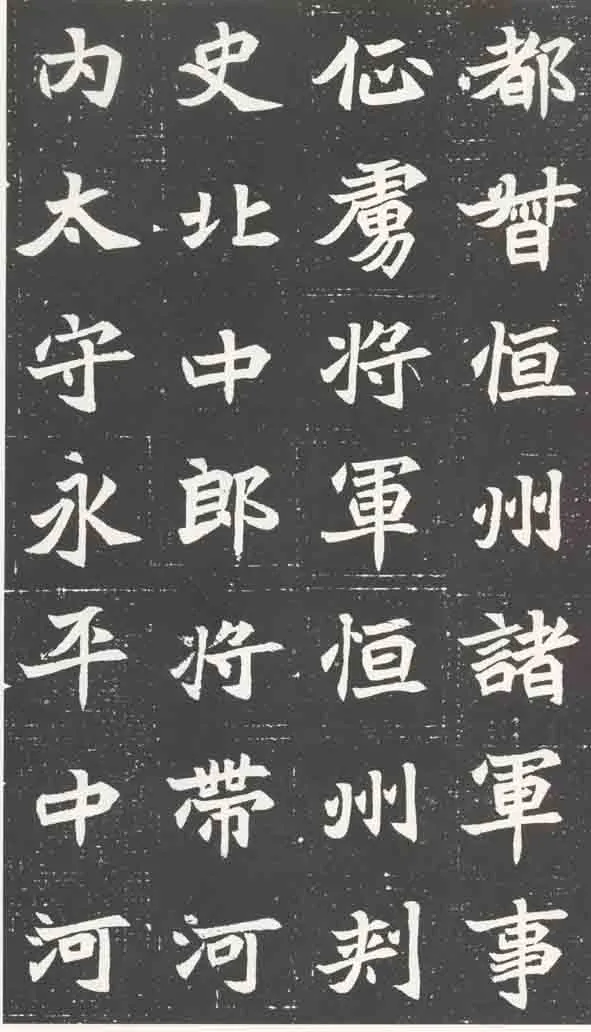 都督恒州諸軍事
征虜将軍恒州刾
史北中郎将帶河
内太守永平中河